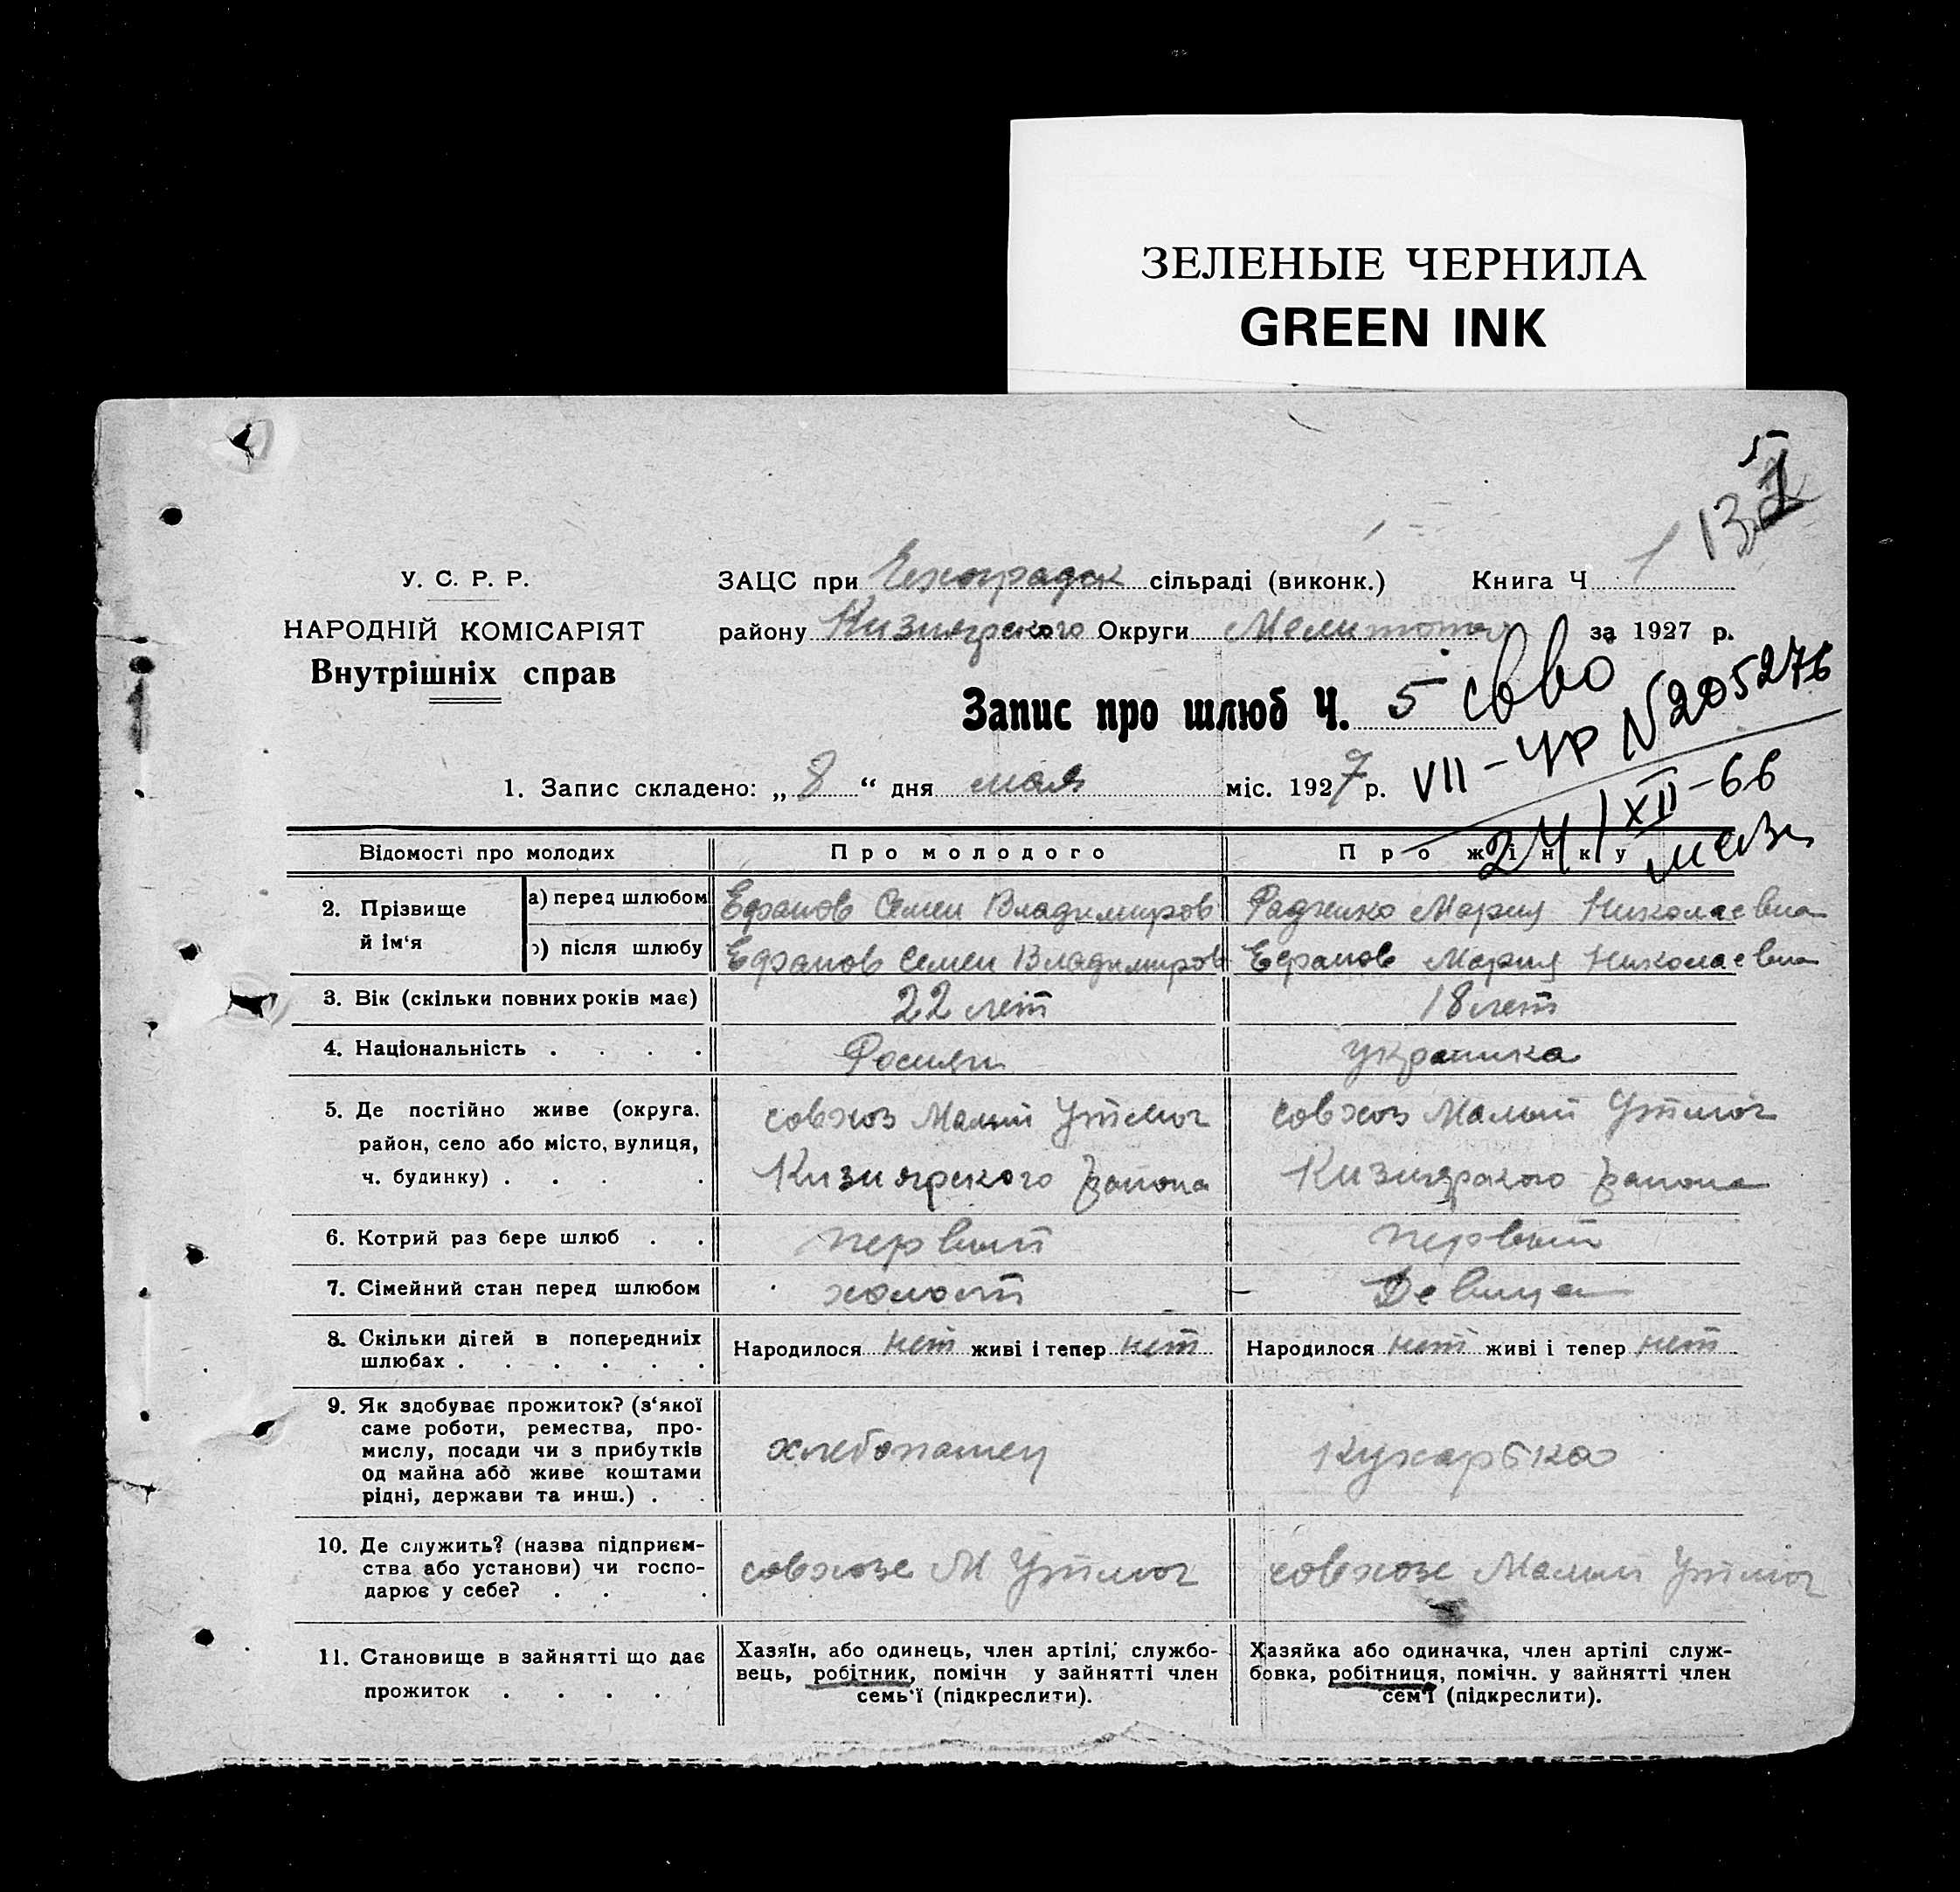 ЗЕЛЕНЫЕ ЧЕРНИЛА
GREEN INK
У. С. Р. Р.
НАРОДНІЙ КОМІСАРІЯТ
Внутрішніх справ
ЗАЦС при сільраді (виконк.) Книга Ч 1
району Кизиярского Округи за 1927 р.
Запис про шлюб Ч. 5
VII-УР N205276
24/XII-66
1. Запис складено: „ 8 “ дня мая міс. 1927 р.
Відомості про молодих Про молодого Про жінку
2. Прізвище й ім‘я
а) перед шлюбом Ефанов Семен Владимиров Радженко Мария Николаевна
б) після шлюбу Ефанов Семен Владимиров Ефанов Мария Николаевна
3. Вік (скільки повних років має) 22 лет 18 лет
4. Національність . . . . Росиян украинка
5. Де постійно живе (округа. район, село або місто, вулиця, ч. будинку) . . . .
совхоз Малый Утлюг совхоз Малый Утлюг
Кизиярского района Кизиярского района
6. Котрий раз бере шлюб . . первый первый
7. Сімейний стан перед шлюбом холост Девица
8. Скільки дітей в попередниіх шлюбах . . . . . . Народилося нет живі і тепер нет Народилося нет живі і тепер нет
9. Як здобуває прожиток? (з‘якої
саме роботи, ремества, про-
мислу, посади чи з прибутків
од майна або живе коштами
рідні, держави та инш.) . .
хлебопашец Кухарька
10. Де служить? (назва підприєм-
ства або установи) чи госпо-
дарює у себе? . . .
совхозе М Утлюг совхозе Малый Утлюг
11. Становище в зайнятті що дає
прожиток . . . .
Хазяїн, або одинець, член артілі, службо-
вець, робітник, помічн у зайнятті член
семь‘ї (підкреслити).
Хазяйка або одиначка, член артілі служ-
бовка, робітниця, помічн. у зайнятті член
сем‘ї (підкреслити).